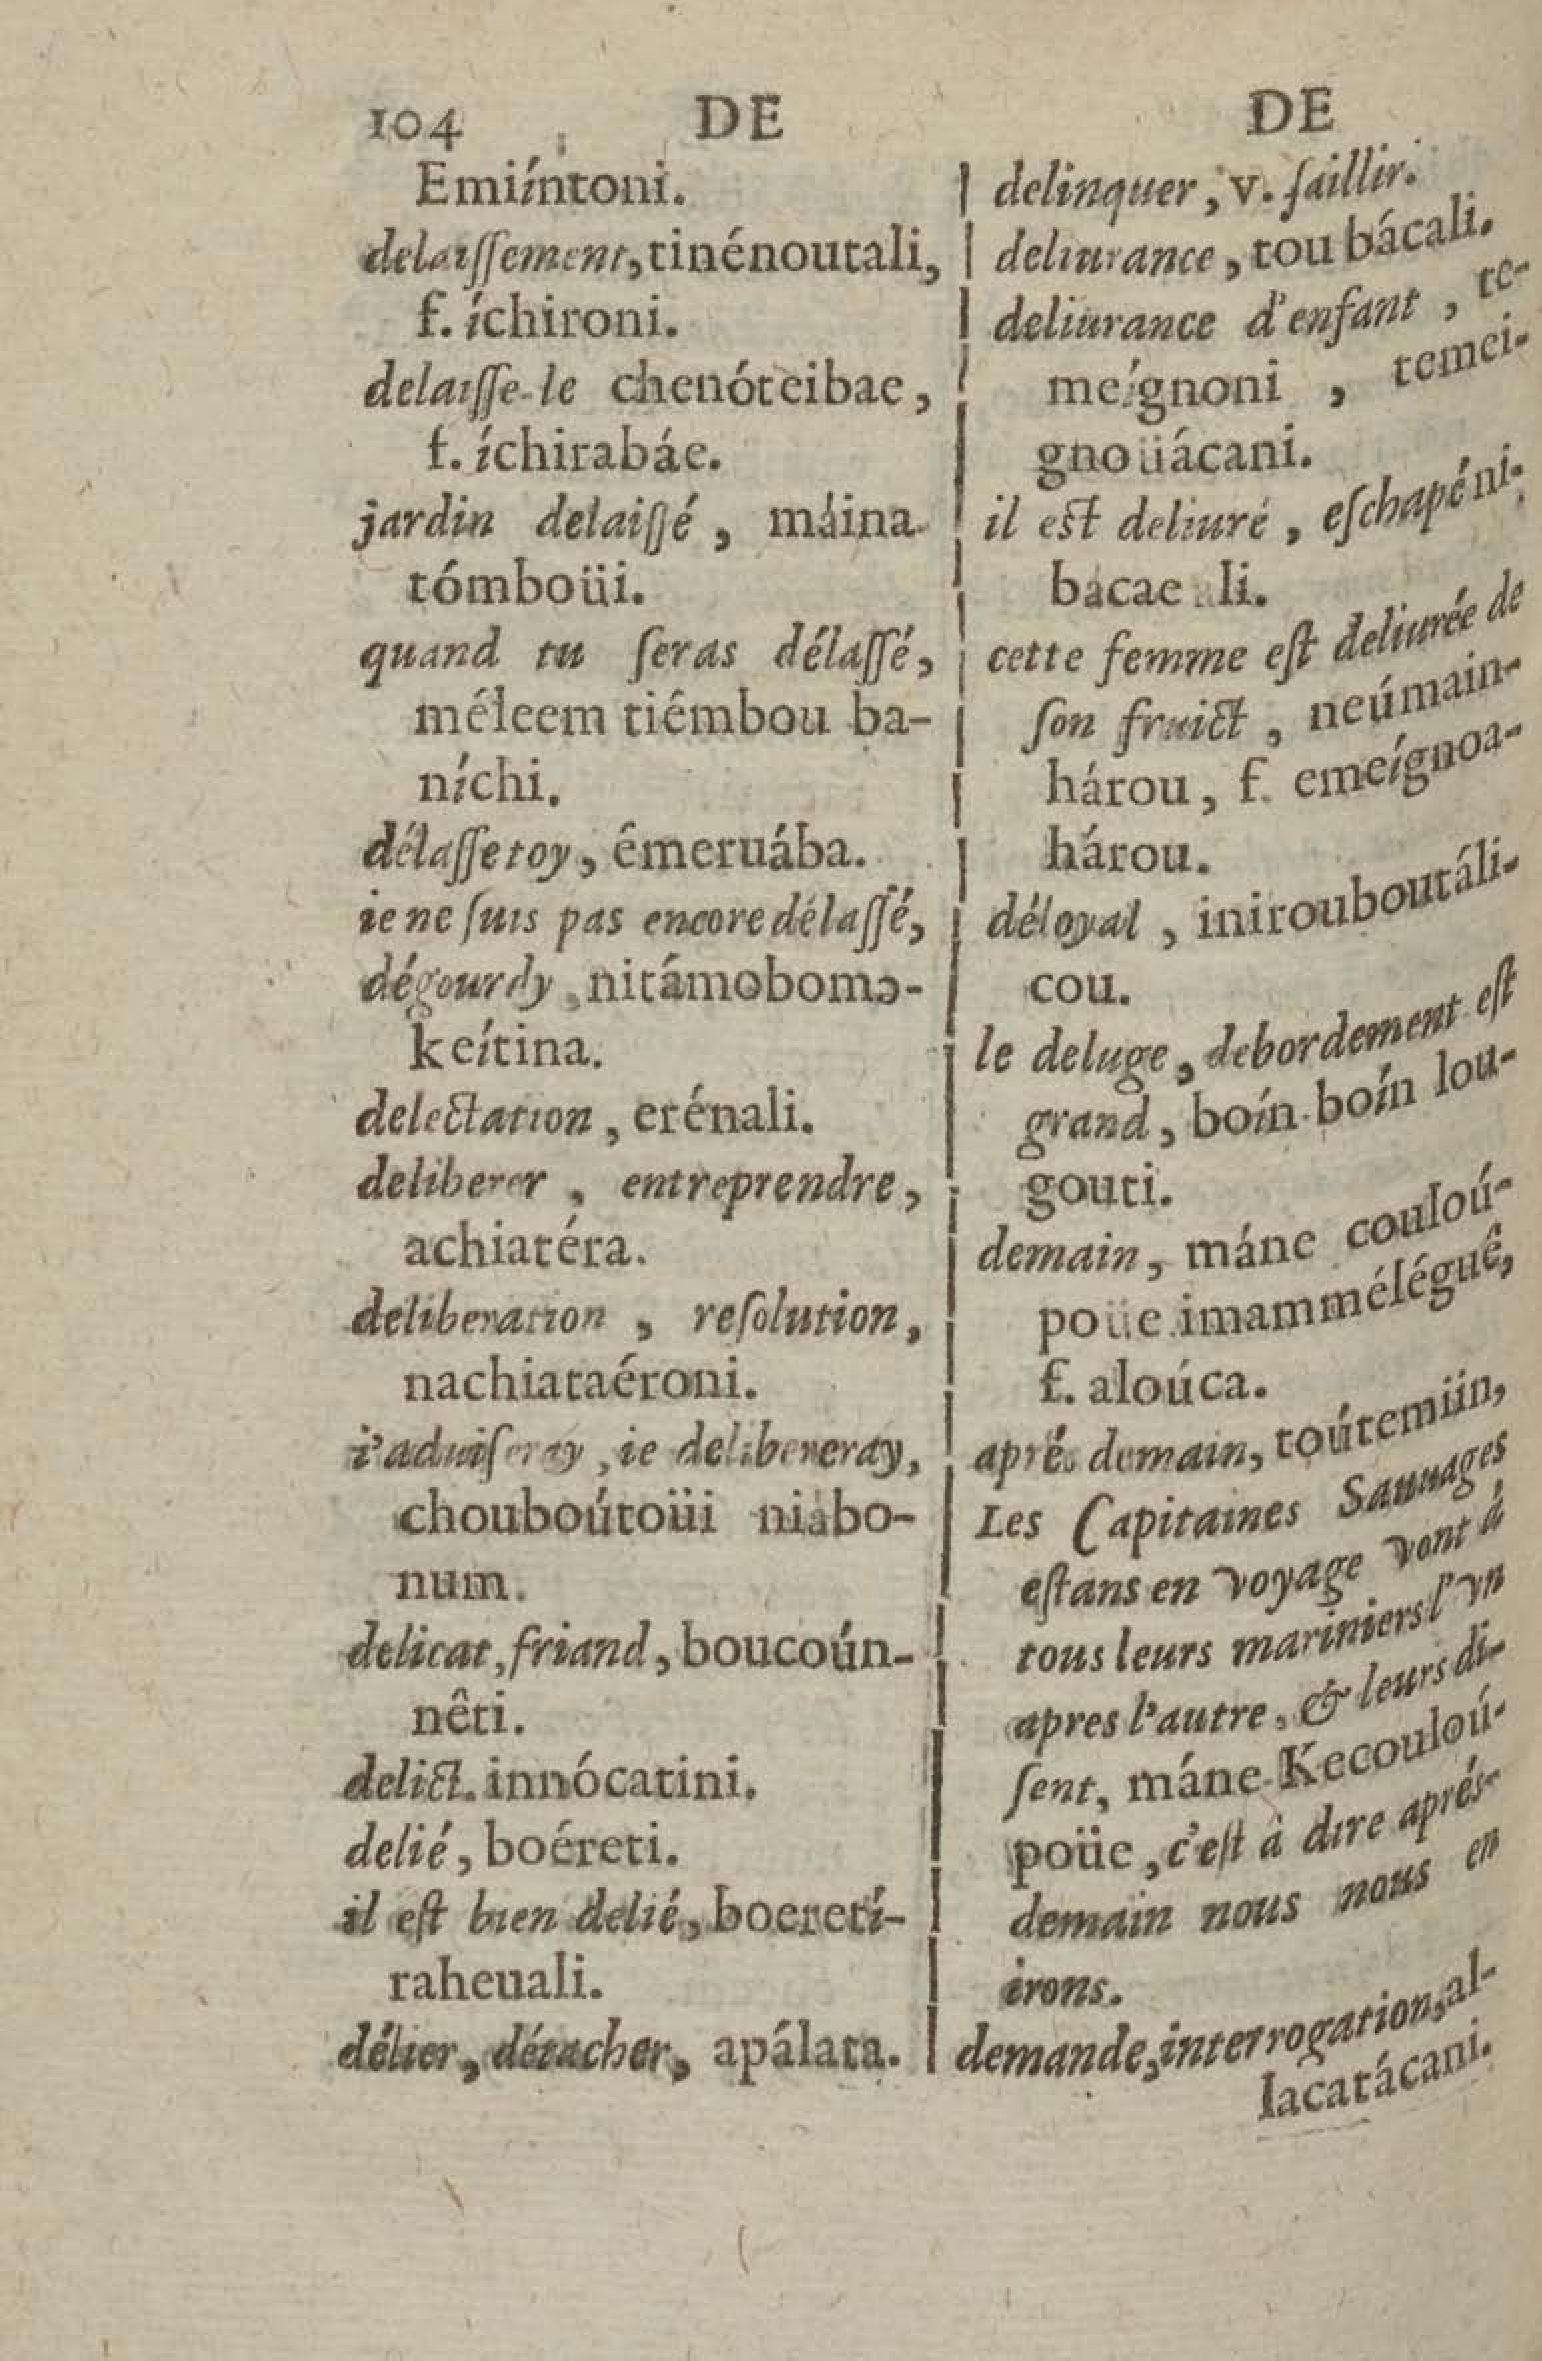 104 DE DE
Emiíntoni.
delaiſſement, tinénoutali,
f. íchironi.
delaiſſe-le chenóteibae,
f. íchirabáe.
jardin delaiſſé, máina
tómboüi.
quand tu ſeras délaſſé,
méleem tiémbou ba-
níchi.
délaſſe toy, émeruába.
ie ne ſuis pas encore délaſſé,
dégourdy, nitámobomo-
keítina.
delectation, erénali.
deliberer, entreprendre,
achiatéra.
deliberation, reſolution,
nachiataéroni.
i'aduiſeray, ie delibereray,
chouboútoüi niabo-
num.
delicat, friand, boucoún-
nêti.
delict. innócatini.
delié, boéreti.
il eſt bien delié, boeretí-
raheuali.
délier, détacher, apálata.
delinquer, v. faillir.
deliurance, tou bácali.
deliurance d'enfant, te-
meígnoni, temei-
gnoüácani.
il est deliuré, eſchapé ni-
bacae li.
cette femme eſt deliurée de
ſon fruict, neúmain-
hárou, f. emeígnoa-
hárou.
déloyal, inirouboutáli-
cou.
le deluge, debordement eſt
grand, boín-boín lou-
gouti.
demain, máne couloú-
poüe imammélégué,
f. aloúca.
aprés demain, toútemiin,
Les Capitaines Sauuages
eſtans en voyage vont à
tous leurs mariniers l'vn
apres l'autre, & leurs di-
ſent, máne Kecouloú-
poüe, c'eſt à dire aprés-
demain nous nous en
irons.
demande, interrogation, al-
Iacatácani.